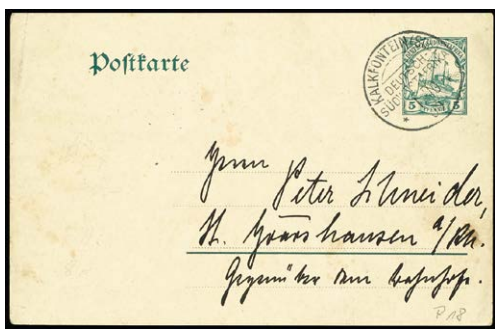 Postkarte
KALKFONTEIN (SÜD)
DEUTSCH-
SÜDWESTAFRIKA
5 5
Herrn Peter Schneider,
St. Goarshausen a/Rh.
Gegenüber dem Bahnhofe.
P 18